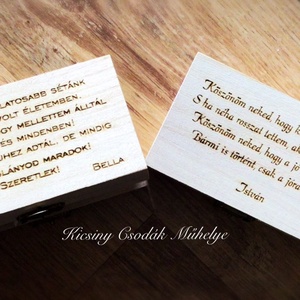 LATOSABB SÉTÁNK
VOLT ÉLETEMBEN.
GY MELLETTEM ÁLLTÁL
ÉS MINDENBEN!
HEZ ADTÁL, DE MINDIG
LÁNYOD MARADOK!
SZERETLEK! BELLA
Köszönöm neked, hogy a
S ha néha rosszat tettem, ak
Köszönöm neked, hogy a fo
Bármi is történt, csak a jó
István
Kicsiny Csodák Műhelye